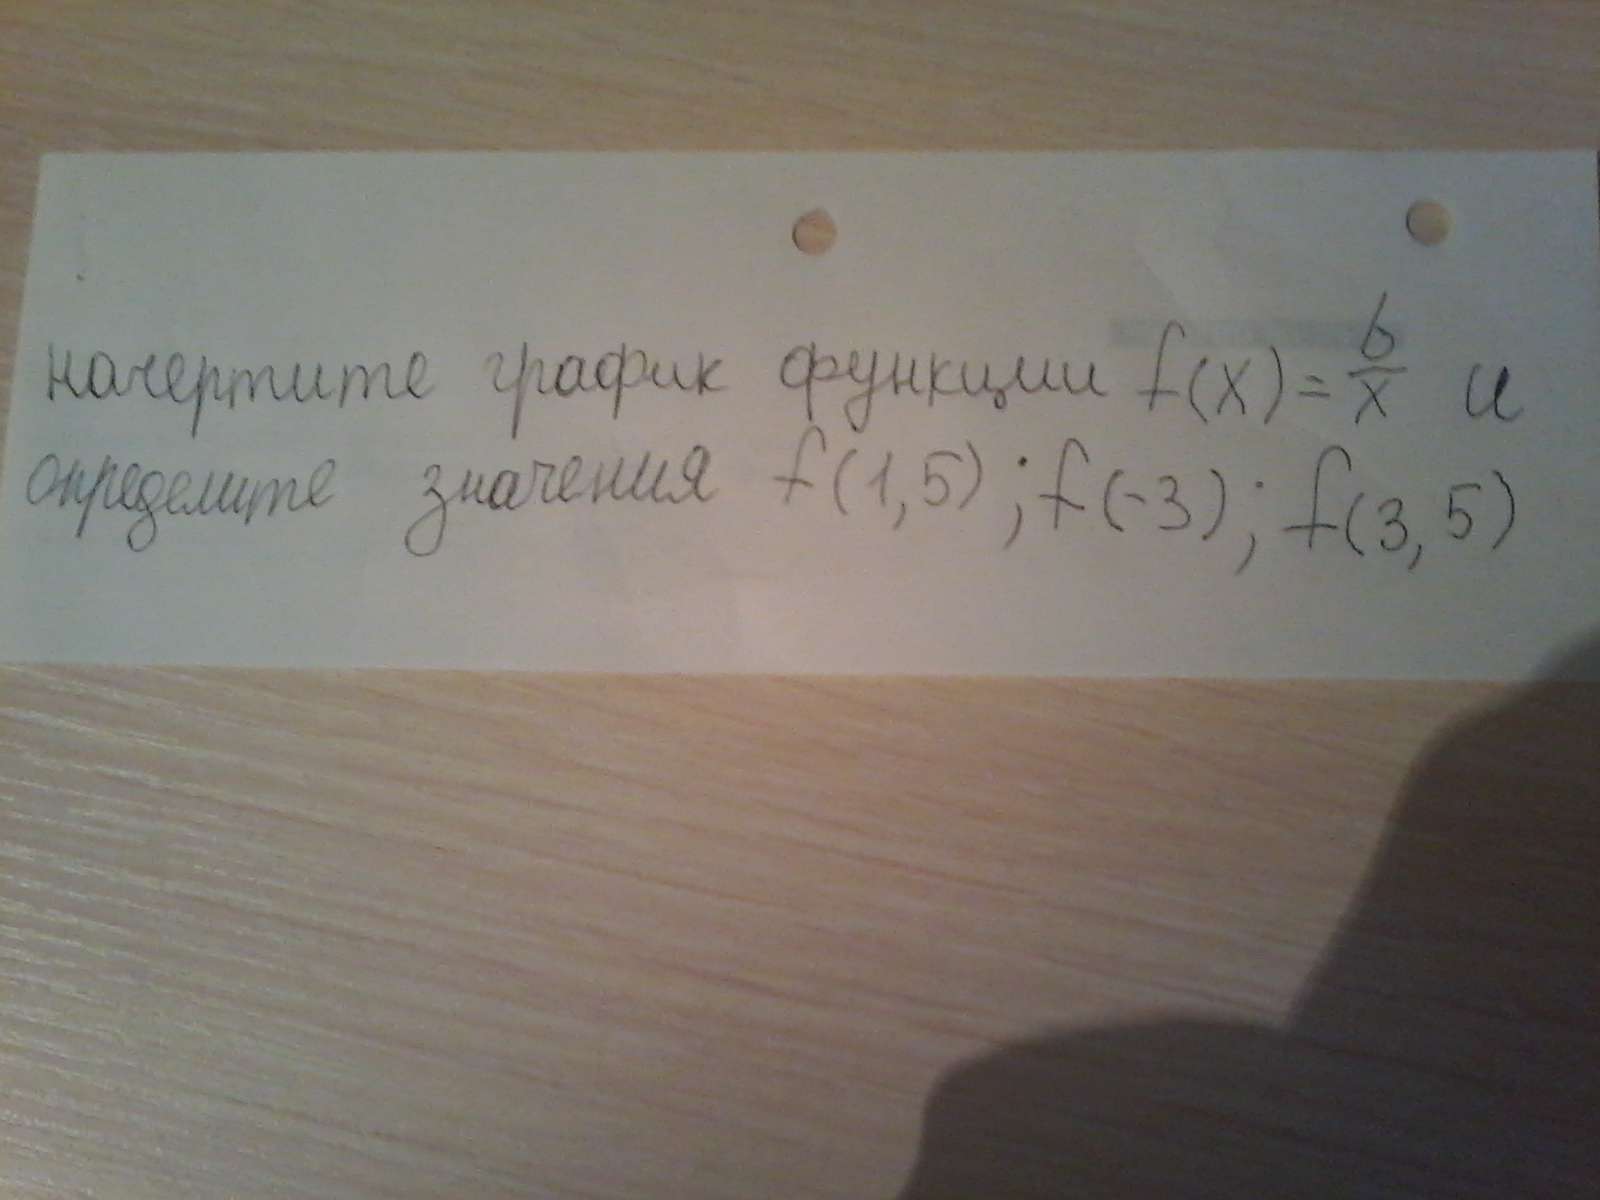 начертите график функции f(x) = 6/x и
определите значения f(1,5); f(-3); f(3,5)